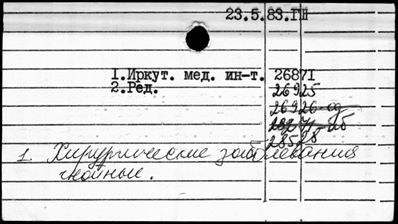 23.5.83.ГН
1.Иркут. мед. ин-т. 26871
2.Ред. 26925
26926-од
23525
1. Хирургические заболевания
гнойные.